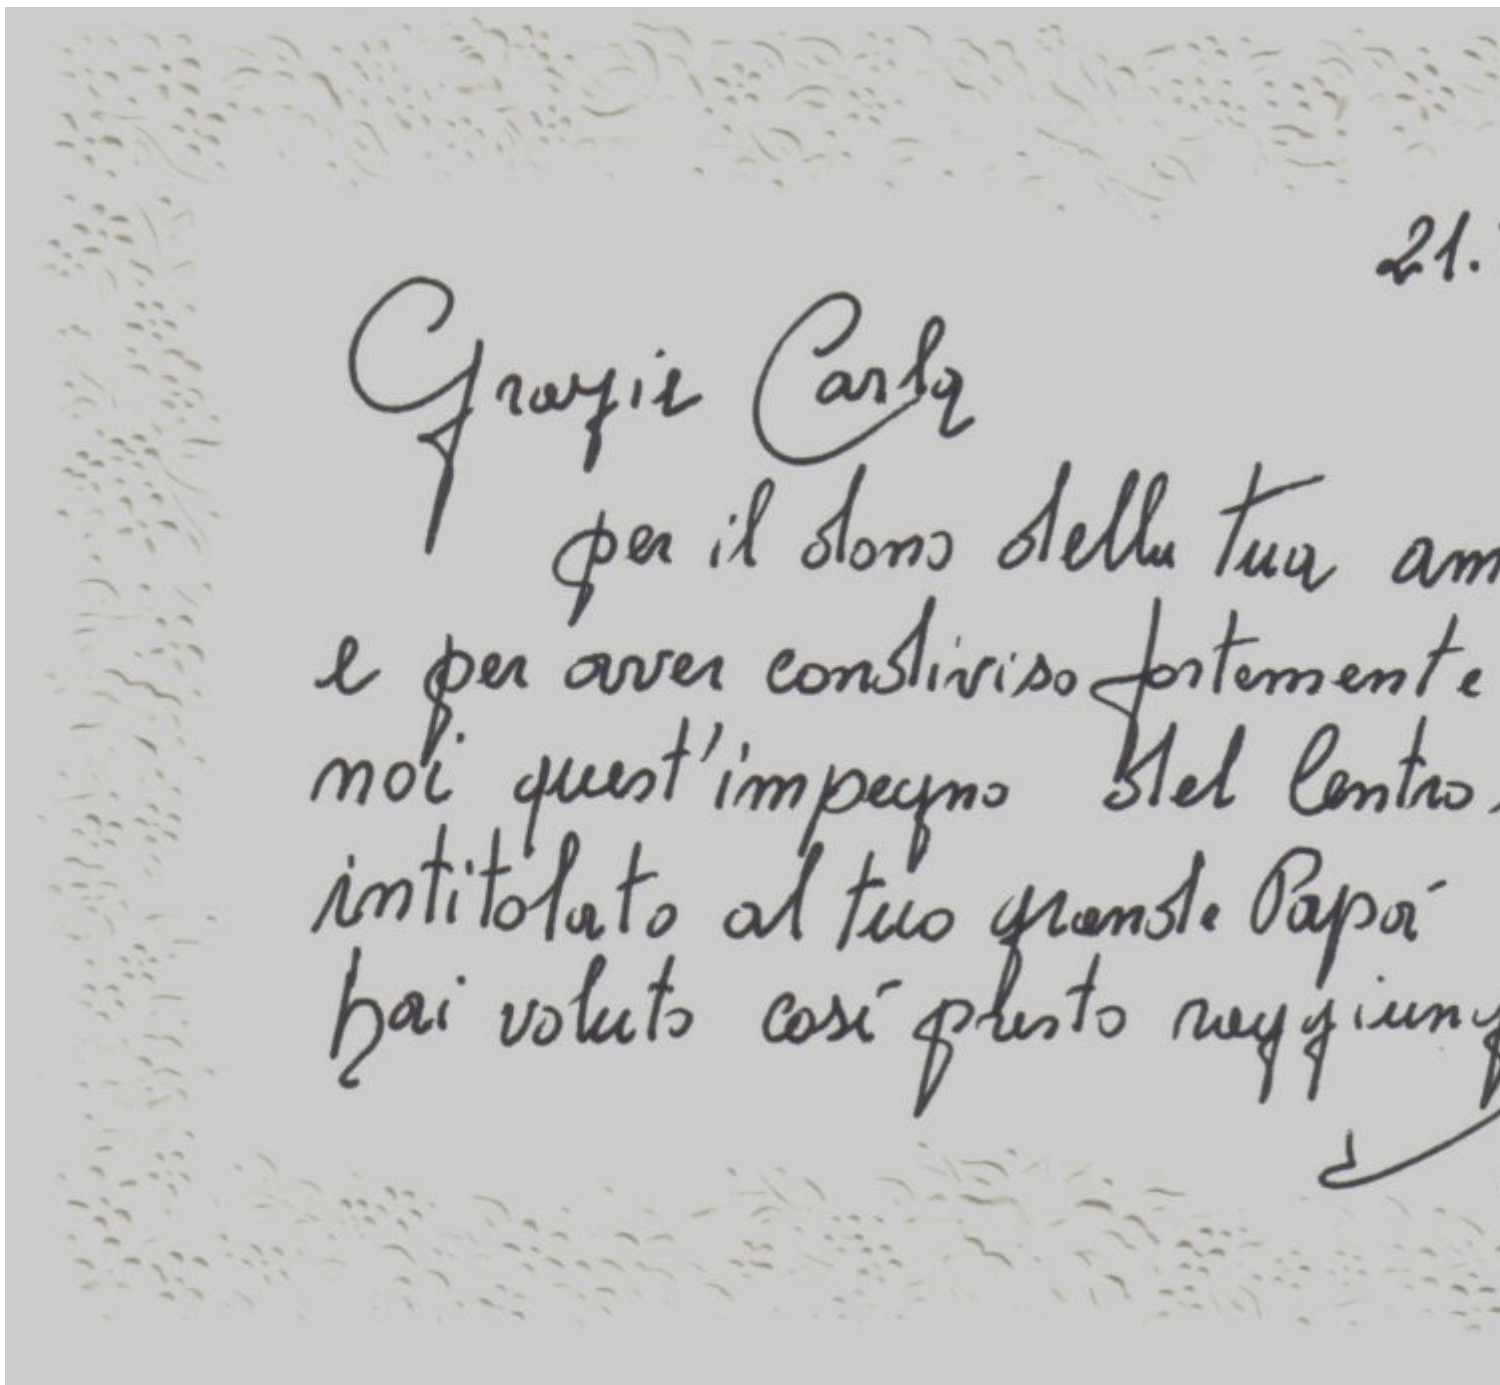 21.
Grazie Carla
per il dono della tua am
e per aver condiviso fortemente
noi quest'impegno del Centro
intitolato al tuo grande Papá
hai voluto così presto raggiung